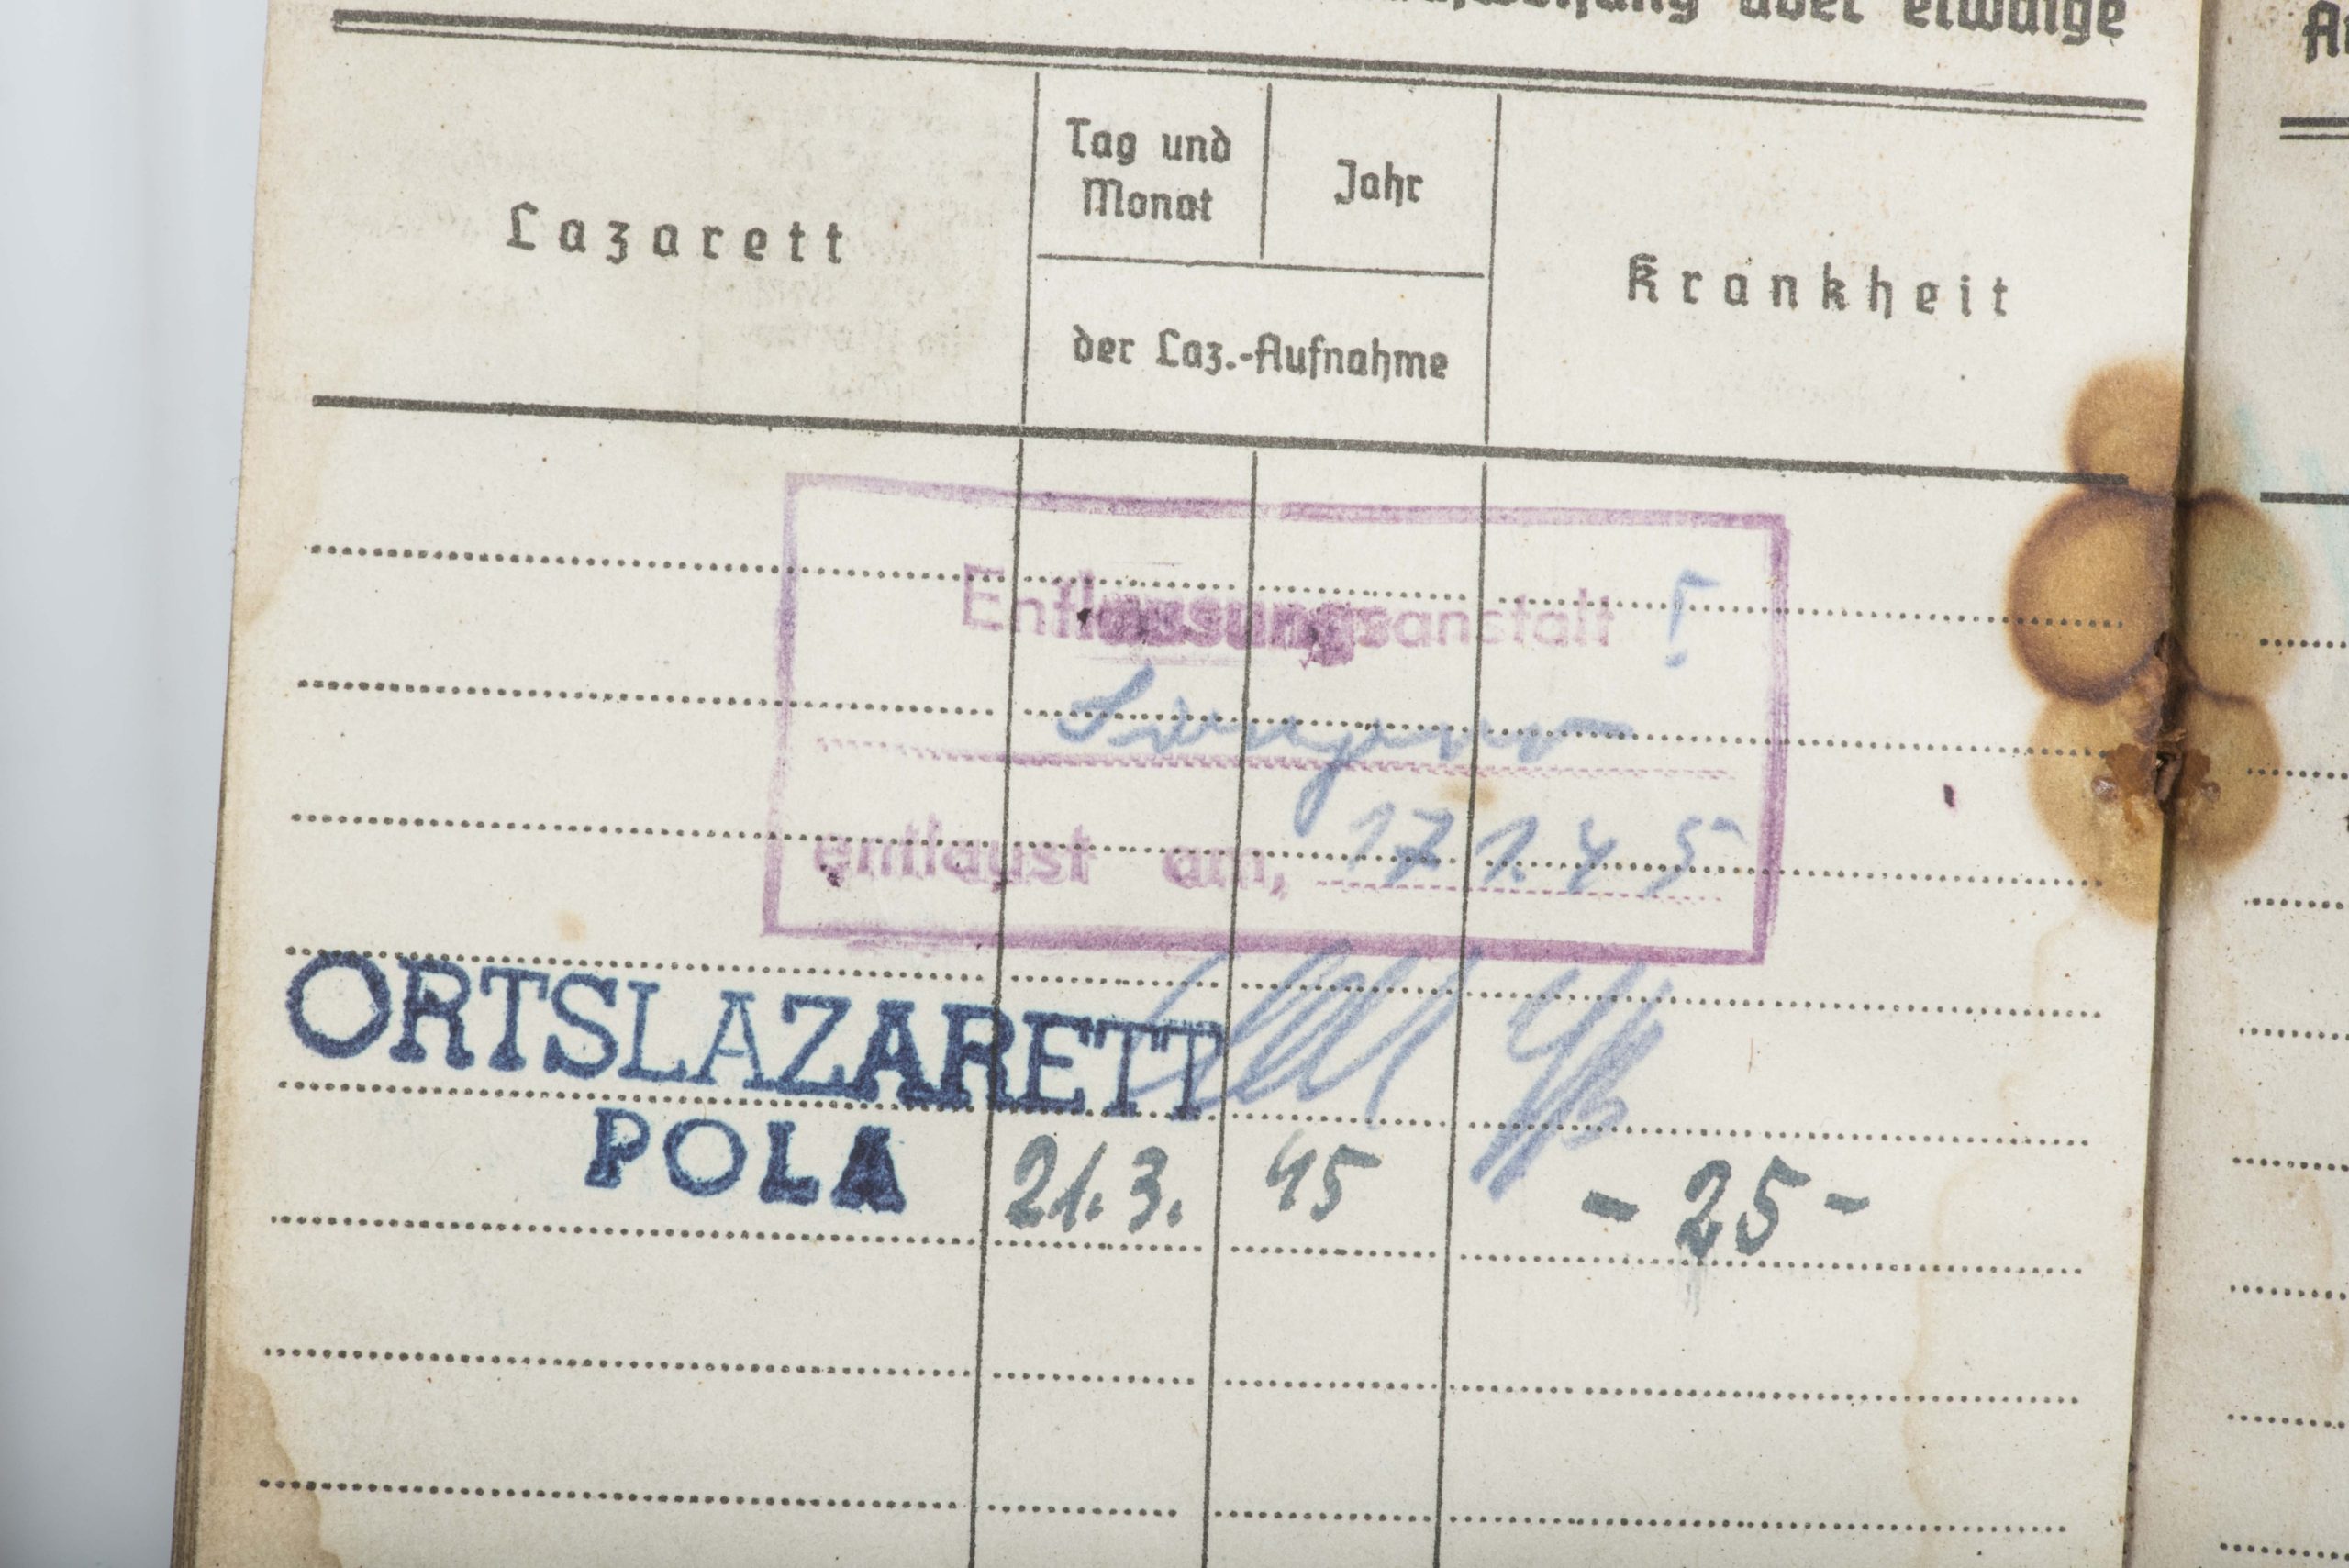 über etwaige
Lazarett
Tag und
Monat
Jahr
der Laz.-Aufnahme
Krankheit
Entlassungsanstalt
entlaust am, 17 1. 45
ORTSLAZARETT
POLA
21. 3. 45 - 25 -